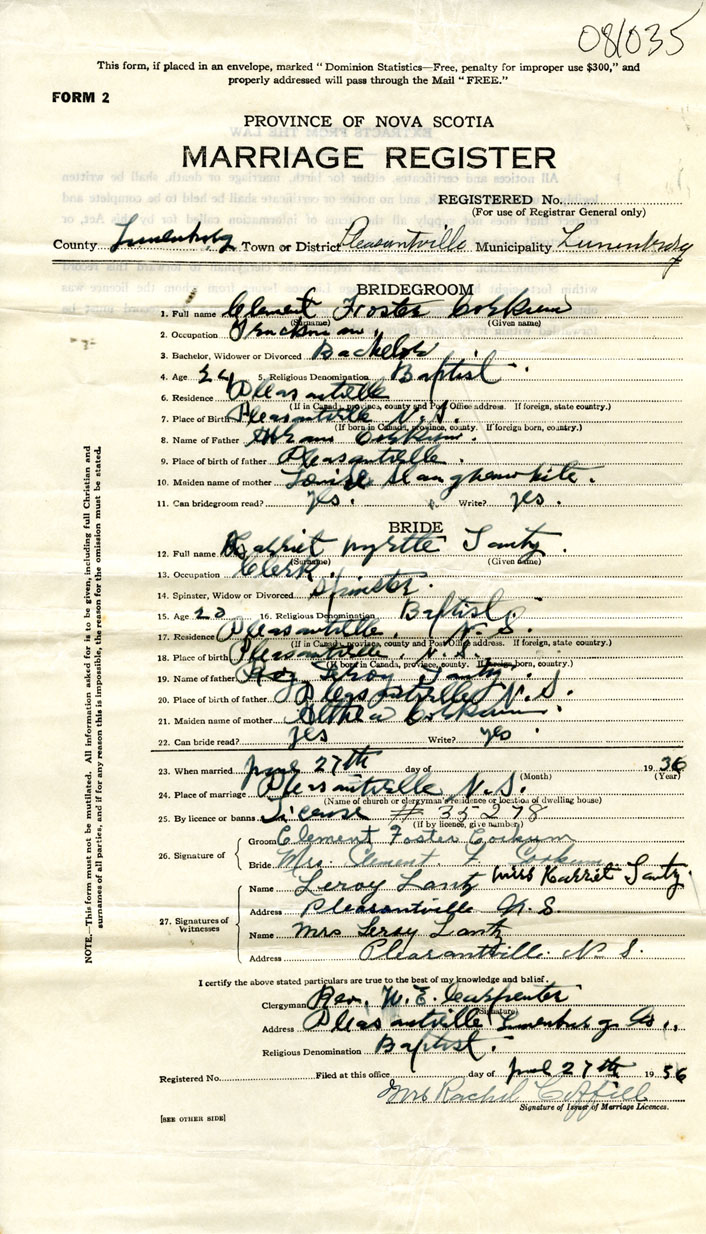 081035
This form, if placed in an envelope, marked "Dominion Statistics—Free, penalty for improper use $300," and
properly addressed will pass through the Mail "FREE."
FORM 2
PROVINCE OF NOVA SCOTIA
MARRIAGE REGISTER
REGISTERED No.
(For use of Registrar General only)
County Lunenburg Town or District Pleasantville Municipality Lunenburg
BRIDEGROOM
1. Full name Clement Foster Corkum
(Surname) (Given name)
2. Occupation Truckman.
3. Bachelor, Widower or Divorced Bachelor
4. Age 24 5. Religious Denomination Baptist.
6. Residence Pleasantville
(If in Canada, province, county and Post Office address. If foreign, state country.)
7. Place of Birth Pleasantville N.S.
(If born in Canada, province, county. If foreign born, country.)
8. Name of Father Corkum.
9. Place of birth of father Pleasantville.
10. Maiden name of mother Louise Slaughenwhite.
11. Can bridegroom read? yes. Write? yes.
BRIDE
12. Full name Harriet Myrtle Lantz.
(Surname) (Given name)
13. Occupation Clerk.
14. Spinster, Widow or Divorced Spinster.
15. Age 20 16. Religious Denomination Baptist.
17. Residence Pleasantville, N.S.
(If in Canada, province, county and Post Office address. If foreign, state country.)
18. Place of birth Pleasantville, N.S.
(If born in Canada, province, county. If foreign born, country.)
19. Name of father Leroy Lantz.
20. Place of birth of father Pleasantville N.S.
21. Maiden name of mother Althea Corkum.
22. Can bride read? yes Write? yes
23. When married 27th day of 1936
(Month) (Year)
24. Place of marriage Pleasantville N.S.
(Name of church or clergyman's residence or location of dwelling house)
25. By licence or banns License # 35278
(If by licence, give number)
26. Signature of
Groom Clement Foster Corkum
Bride Mrs. Clement. F. Corkum
Miss Harriet Lantz.
27. Signatures of Witnesses
Name Leroy Lantz
Address Pleasantville N.S.
Name Mrs Leroy Lantz
Address Pleasantville. N.S.
I certify the above stated particulars are true to the best of my knowledge and belief.
Clergyman Rev. W. E. Carpenter
(Signature)
Address Pleasantville Lunenburg Co.,
Religious Denomination Baptist.
Registered No. Filed at this office day of 27th 1936
Mrs Rachel
Signature of Issuer of Marriage Licences.
[SEE OTHER SIDE]
NOTE.—This form must not be mutilated. All information asked for is to be given, including full Christian and
surnames of all parties, and if for any reason this is impossible, the reason for the omission must be stated.